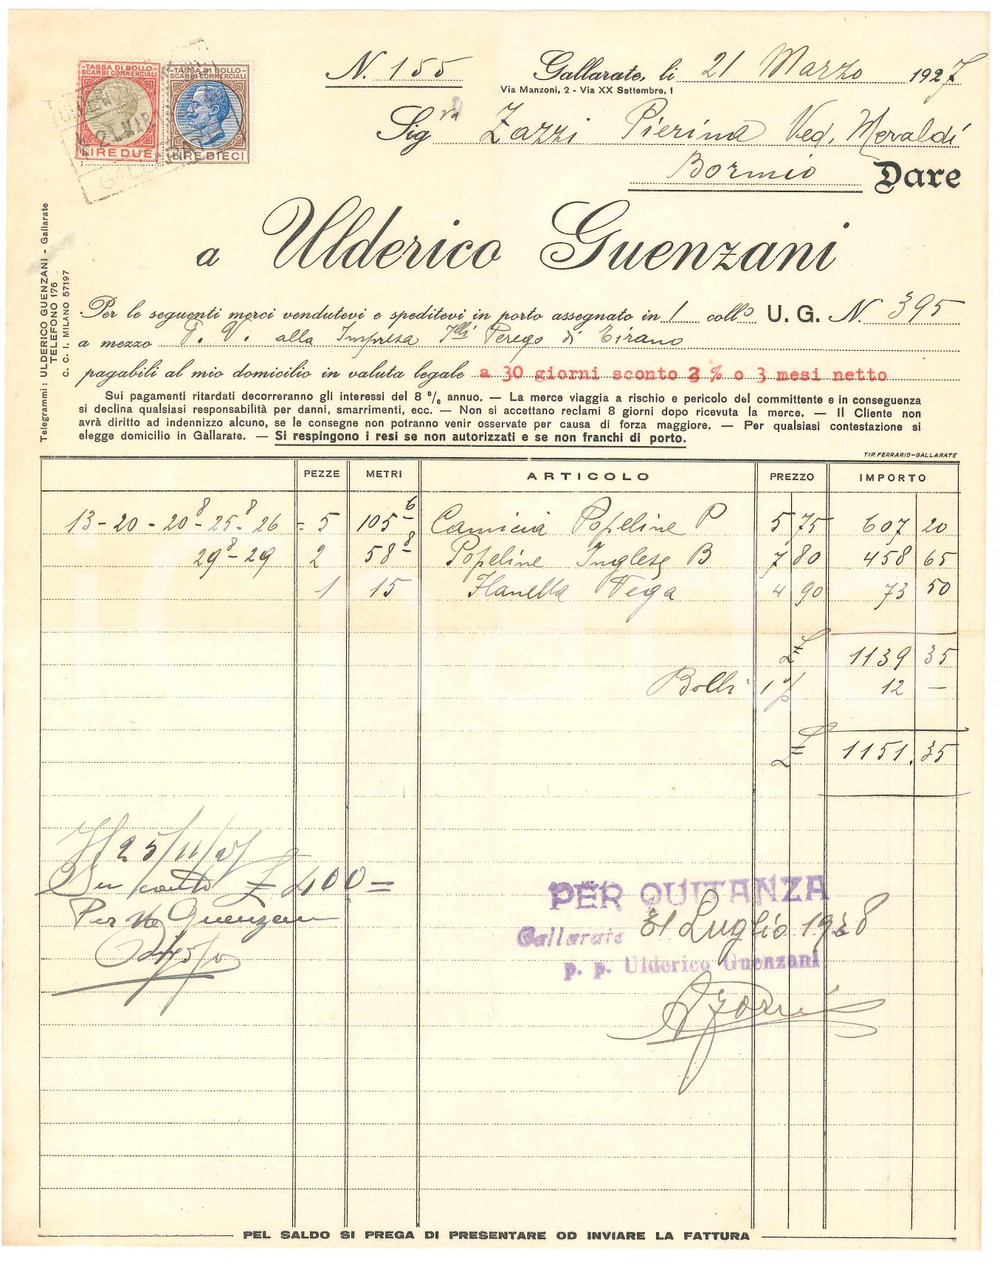 TASSA DI BOLLO
SCAMBI COMMERCIALI
LIRE DUE
TASSA DI BOLLO
SCAMBI COMMERCIALI
LIRE DIECI
N. 155 Gallarate, li 21 Marzo 1927
Via Manzoni, 2 - Via XX Settembre, 1
Sig ra Zazzi Pierina Ved. Meraldi
Bormio Dare
a Ulderico Guenzani
Telegrammi: ULDERICO GUENZANI - Gallarate
TELEFONO 176
C. C. I. MILANO 57197
Per le seguenti merci vendutevi e speditevi in porto assegnato in 1 collo U. G. N. 395
a mezzo P. V. alla Impresa Flli Perego di Tirano
pagabili al mio domicilio in valuta legale a 30 giorni sconto 2 % o 3 mesi netto
Sui pagamenti ritardati decorreranno gli interessi del 8 % annuo. — La merce viaggia a rischio e pericolo del committente e in conseguenza
si declina qualsiasi responsabilità per danni, smarrimenti, ecc. — Non si accettano reclami 8 giorni dopo ricevuta la merce. — Il Cliente non
avrà diritto ad indennizzo alcuno, se le consegne non potranno venir osservate per causa di forza maggiore. — Per qualsiasi contestazione si
elegge domicilio in Gallarate. — Si respingono i resi se non autorizzati e se non franchi di porto.
TIP. FERRARIO-GALLARATE
PEZZE METRI ARTICOLO PREZZO IMPORTO
13 - 20 - 20 8 - 25 8 - 26 = 5 105 6 Camicia Popeline P 5 75 607 20
29 8 - 29 2 58 8 Popeline Inglese B 7 80 458 65
1 15 Flanella Vega 4 90 73 50
1139 35
Bolli 1 % 12 —
1151.35
25/11/27
In conto £ 400 =
Per Guenzani
PER QUITANZA
Gallarate 31 Luglio 1928
p. p. Ulderico Guenzani
PEL SALDO SI PREGA DI PRESENTARE OD INVIARE LA FATTURA